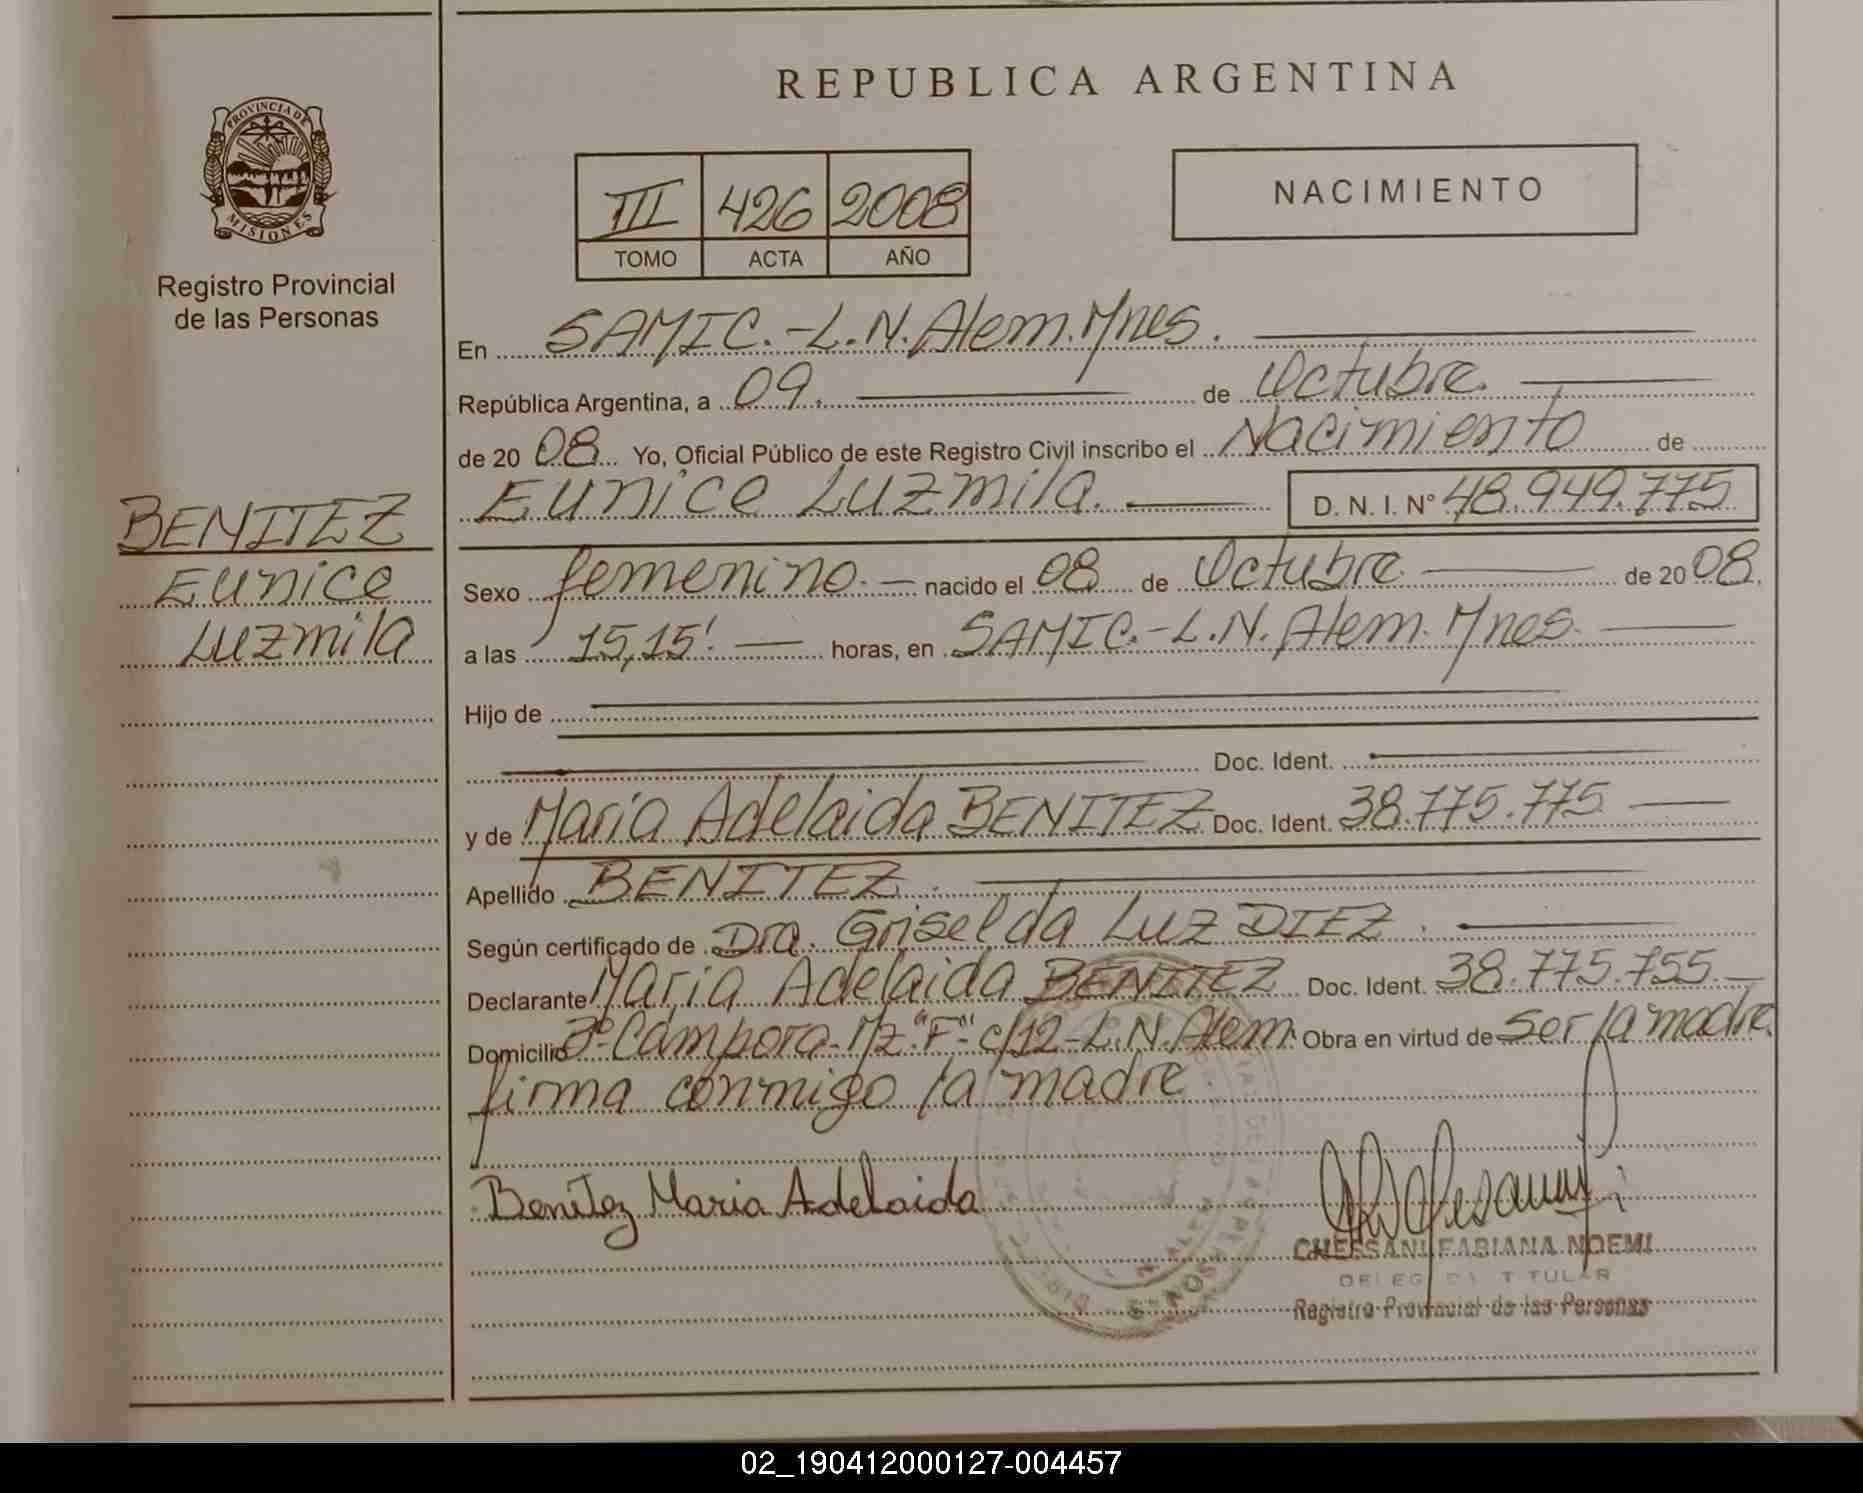 REPUBLICA ARGENTINA
PROVINCIA DE
MISIONES
Registro Provincial
de las Personas
III 426 2008
TOMO ACTA AÑO
NACIMIENTO
En SAMIC.-L.N.Alem.Mnes.
República Argentina, a 09. de Octubre.
de 20 08 Yo, Oficial Público de este Registro Civil inscribo el Nacimiento de
Eunice Luzmila. D. N. I. Nº 48.949.775
BENITEZ
Eunice
Luzmila
Sexo femenino.- nacido el 08 de Octubre de 20 08.
a las 15,15' horas, en SAMIC.-L.N. Alem. Mnes.
Hijo de
Doc. Ident.
y de María Adelaida BENITEZ Doc. Ident. 38.775.775
Apellido BENITEZ.
Según certificado de Dra. Griselda Luz DIEZ.
Declarante María Adelaida BENITEZ Doc. Ident. 38.775.755.-
Domicilio 3º Cámpora-Mz."F"-c/12-L.N.Alem. Obra en virtud de Ser la madre.
firma conmigo la madre
Benitez Maria Adelaida
CHESSANI FABIANA NOEMI
TITULAR
Registro Provincial de las Personas
02_190412000127-004457